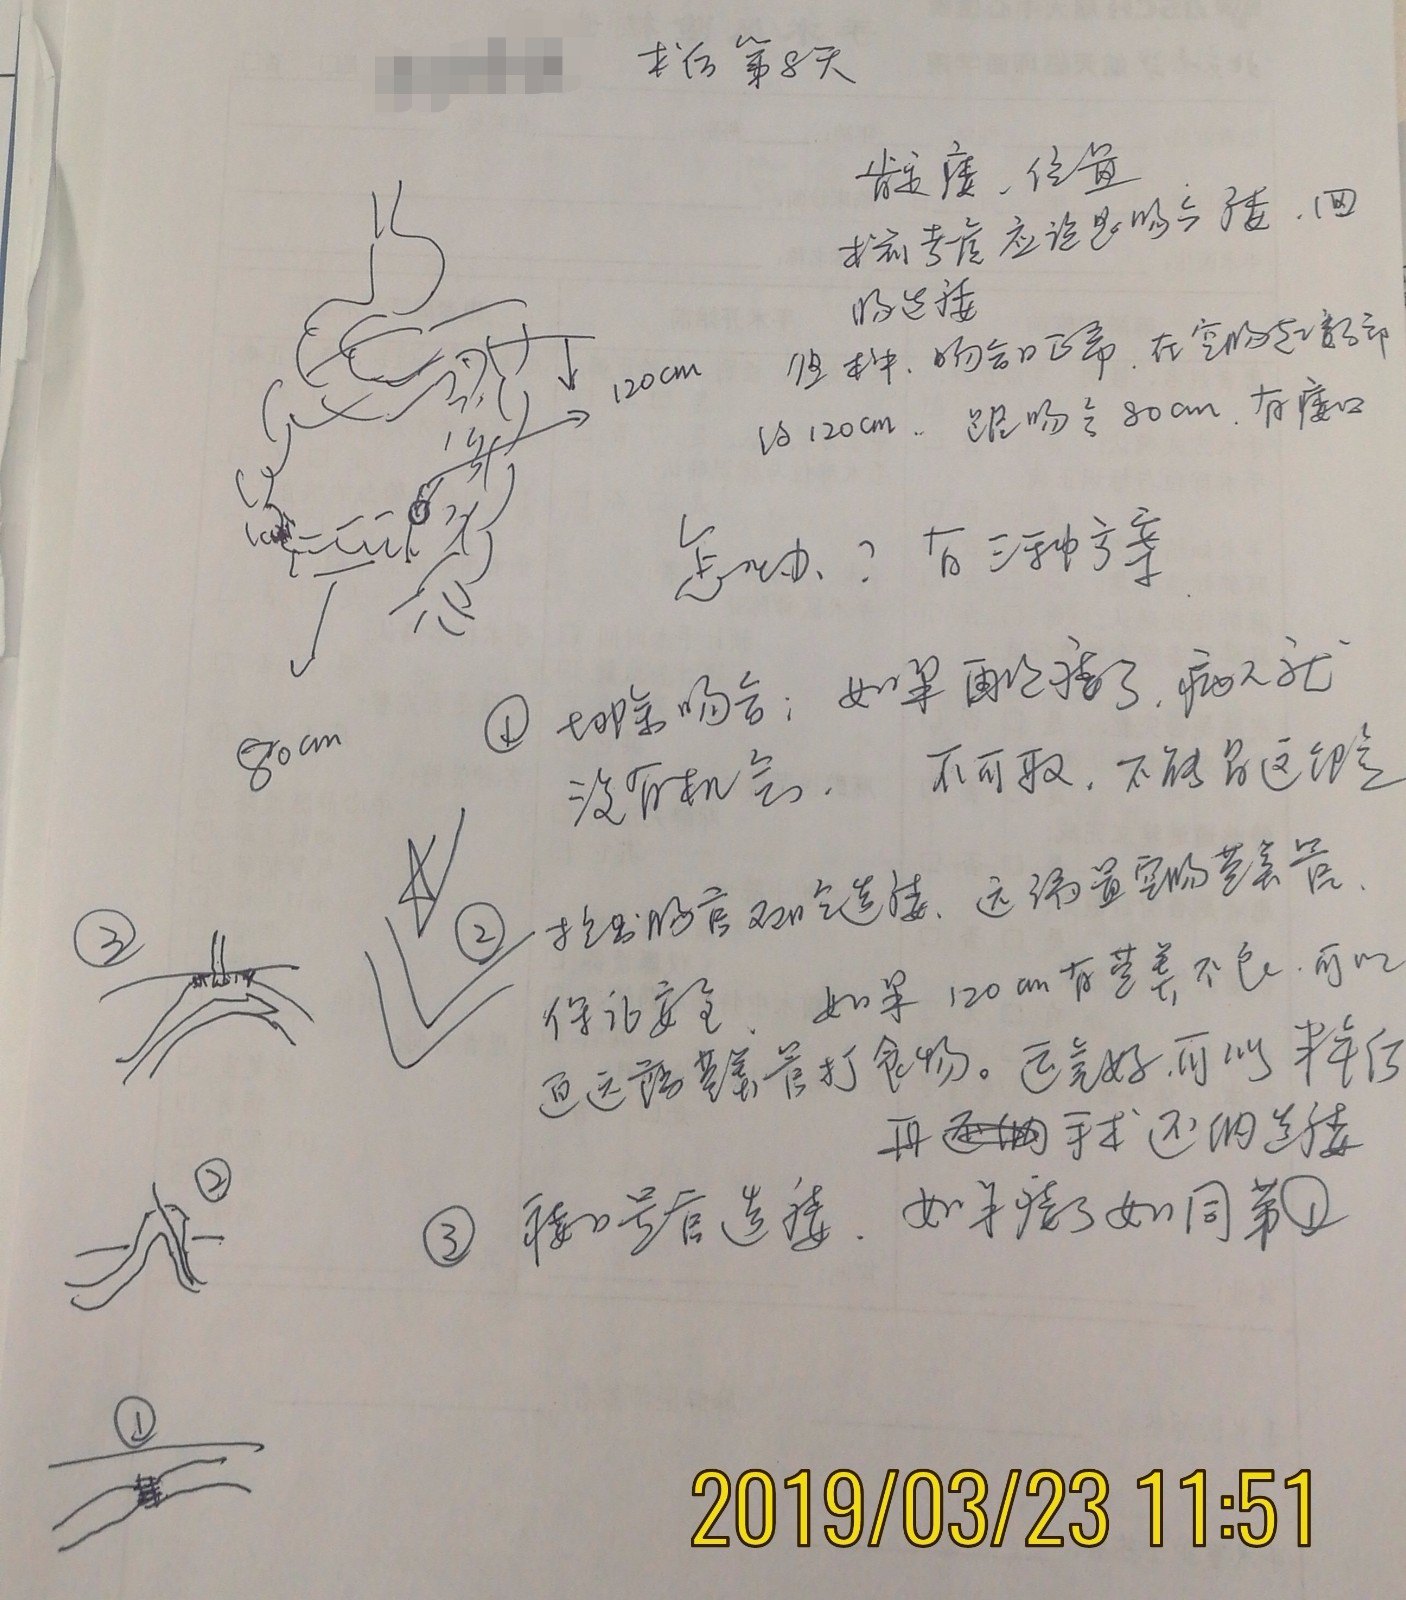 术后第8天
肯定瘘、位置
术前考虑应该是吻合瘘、回
肠造瘘
但术中、吻合口正常、在空肠起始部
约120cm、距吻合80cm、有瘘口
120cm
怎么办、? 有三种方案
80cm
① 切除吻合; 如果再次瘘了、病人就
没有机会、 不可取、不能冒这个险
② 拉出肠管双腔造瘘、远端置空肠营养管、
保证安全、 如果120cm有营养不良、可以
向远端营养管打食物。远完好、可以半年后
再手术还纳造瘘
③ 瘘口导管造瘘、 如果瘘了如同第①
③
②
①
2019/03/23 11:51